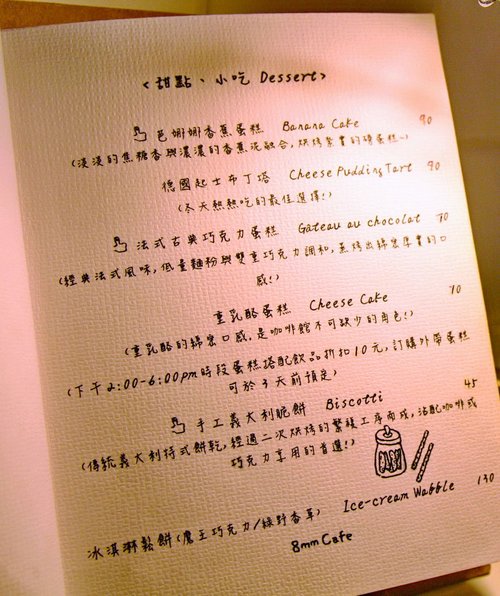 <甜點、小吃 Dessert>
芭娜娜香蕉蛋糕 Banana Cake 90
(淡淡的焦糖香與濃濃的香蕉泥融合,烘烤紮實的磅蛋糕~)
德國起士布丁塔 Cheese Pudding Tart 90
(冬天熱熱吃的最佳選擇!)
法式古典巧克力蛋糕 Gâteau au chocolat 90
(經典法式風味,低量麵粉與雙重巧克力調和,蒸烤出綿密厚實的口
感!)
重乳酪蛋糕 Cheese Cake 90
(重乳酪的綿密口感,是咖啡館不可缺少的角色!)
(下午2:00-6:00pm時段蛋糕搭配飲品折扣10元,訂購外帶蛋糕
可於3天前預定)
手工義大利脆餅 Biscotti 45
(傳統義大利特式餅乾,經過二次烘烤的繁複工序而成,沾配咖啡或
巧克力享用的首選!)
冰淇淋鬆餅(魔王巧克力/綠野香草) Ice-cream Wabble 130
8mm Cafe